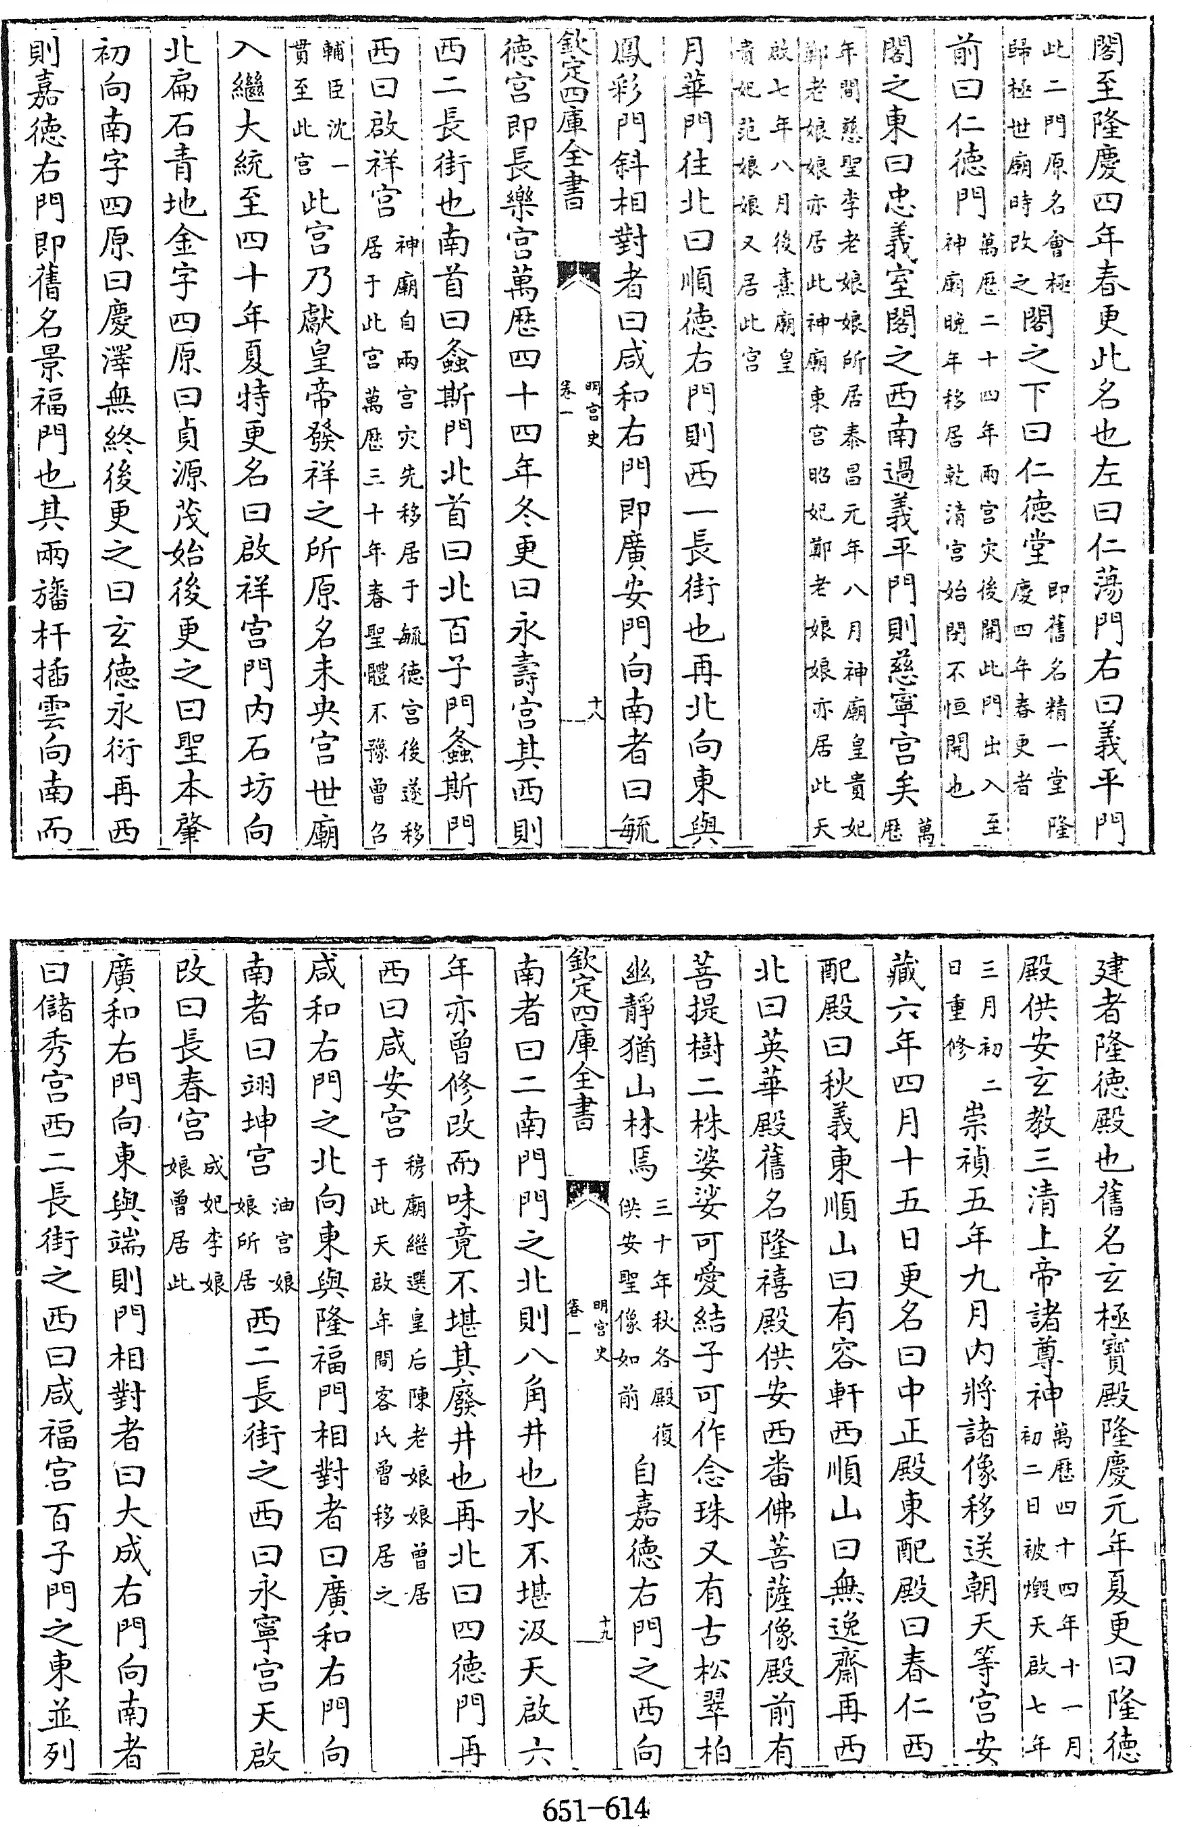 閣至隆慶四年春更此名也左曰仁蕩門右曰義平門
此二門原名會極歸極世廟時改之閣之下曰仁德堂即舊名精一堂隆慶四年春更者
前曰仁德門萬歷二十四年兩宮災後開此門出入至神廟晚年移居乾清宮始閉不恒開也
閣之東曰忠義室閣之西南過義平門則慈寧宮矣萬歷
年間慈聖李老娘娘所居泰昌元年八月神廟皇貴妃鄭老娘娘亦居此神廟東宮昭妃鄭老娘娘亦居此天
啟七年八月後熹廟皇貴妃范娘娘又居此宮
月華門往北曰順德右門則西一長街也再北向東與
鳳彩門斜相對者曰咸和右門即廣安門向南者曰毓
欽定四庫全書 明宮史 卷一 十八
德宮即長樂宮萬歷四十四年冬更曰永壽宮其西則
西二長街也南首曰螽斯門北首曰北百子門螽斯門
西曰啟祥宮神廟自兩宮災先移居于毓德宮後遂移居于此宮萬歷三十年春聖體不豫曾召
輔臣沈一貫至此宮此宮乃獻皇帝發祥之所原名未央宮世廟
入繼大統至四十年夏特更名曰啟祥宮門內石坊向
北扁石青地金字四原曰貞源茂始後更之曰聖本肇
初向南字四原曰慶澤無終後更之曰玄德永衍再西
則嘉德右門即舊名景福門也其兩旛杆插雲向南而
建者隆德殿也舊名玄極寶殿隆慶元年夏更曰隆德
殿供安玄教三清上帝諸尊神萬歷四十四年十一月初二日被燬天啟七年
三月初二日重修崇禎五年九月內將諸像移送朝天等宮安
藏六年四月十五日更名曰中正殿東配殿曰春仁西
配殿曰秋義東順山曰有容軒西順山曰無逸齋再西
北曰英華殿舊名隆禧殿供安西番佛菩薩像殿前有
菩提樹二株婆娑可愛結子可作念珠又有古松翠柏
幽靜猶山林焉三十年秋各殿復供安聖像如前自嘉德右門之西向
欽定四庫全書 明宮史 卷一 十九
南者曰二南門門之北則八角井也水不堪汲天啟六
年亦曾修改而味竟不堪其廢井也再北曰四德門再
西曰咸安宮穆廟繼選皇后陳老娘娘曾居于此天啟年間客氏曾移居之
咸和右門之北向東與隆福門相對者曰廣和右門向
南者曰翊坤宮油宮娘娘所居西二長街之西曰永寧宮天啟
改曰長春宮成妃李娘娘曾居此
廣和右門向東與端則門相對者曰大成右門向南者
曰儲秀宮西二長街之西曰咸福宮百子門之東並列
651-614